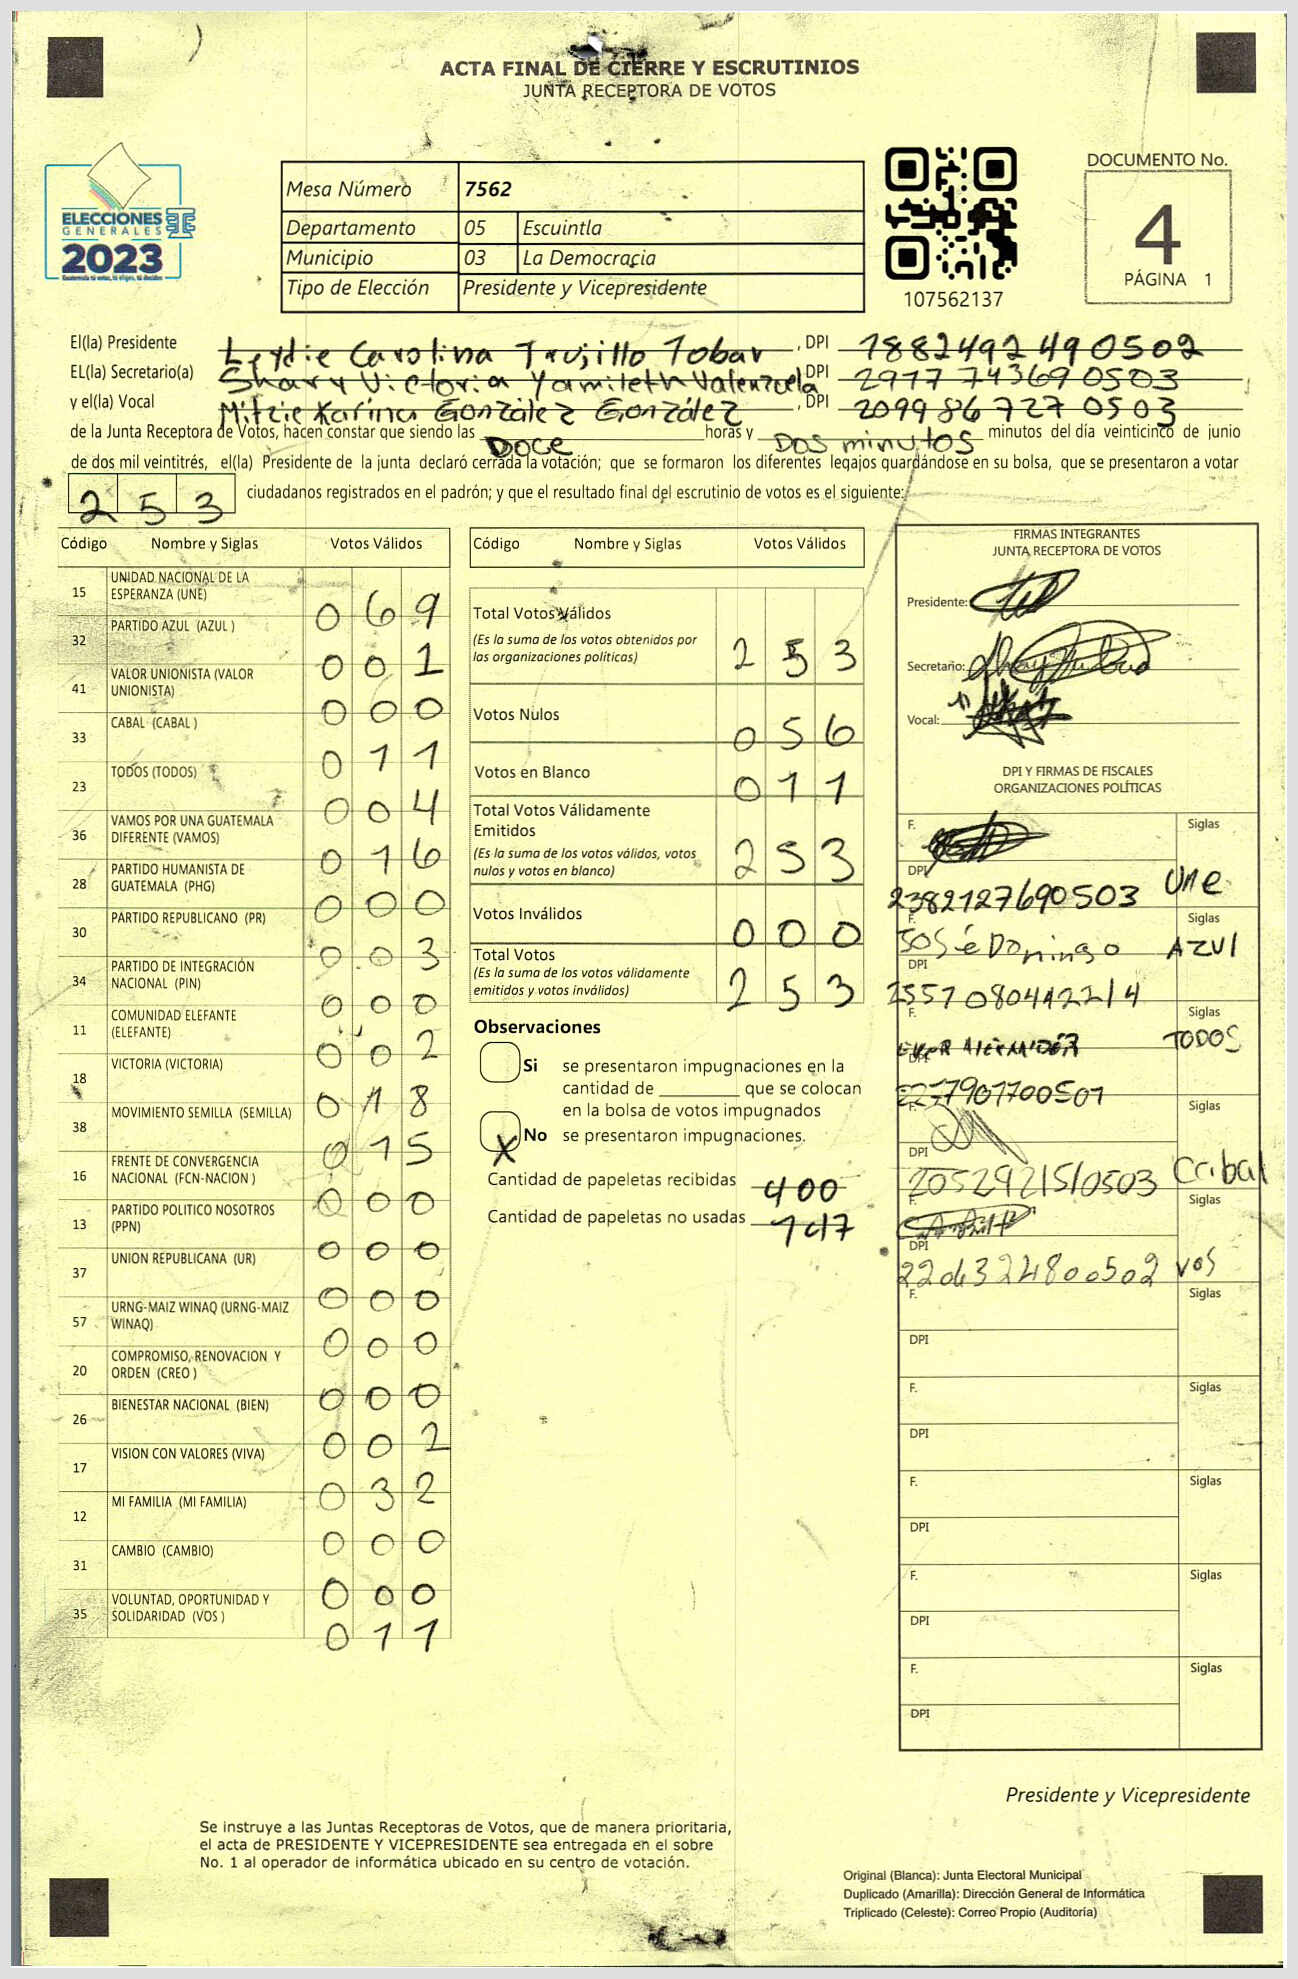 ACTA FINAL DE CIERRE Y ESCRUTINIOS
JUNTA RECEPTORA DE VOTOS
ELECCIONES
GENERALES
2023
Mesa Número 7562
Departamento 05 Escuintla
Municipio 03 La Democracia
Tipo de Elección Presidente y Vicepresidente
107562137
DOCUMENTO No.
4
PÁGINA 1
El(la) Presidente Leydie Carolina Trujillo Tobar, DPI 1882492490502
EL(la) Secretario(a) Shary Victoria Yamileth Valenzuela DPI 2917743690503
y el(la) Vocal Mitzie Karina González González, DPI 2099867270503
de la Junta Receptora de Votos, hacen constar que siendo las Doce horas y Dos minutos minutos del día veinticinco de junio
de dos mil veintitrés, el(la) Presidente de la junta declaró cerrada la votación; que se formaron los diferentes legajos guardándose en su bolsa, que se presentaron a votar
253 ciudadanos registrados en el padrón; y que el resultado final del escrutinio de votos es el siguiente:
Código Nombre y Siglas Votos Válidos
15 UNIDAD NACIONAL DE LA ESPERANZA (UNE) 069
32 PARTIDO AZUL (AZUL ) 001
41 VALOR UNIONISTA (VALOR UNIONISTA) 000
33 CABAL (CABAL ) 011
23 TODOS (TODOS) 004
36 VAMOS POR UNA GUATEMALA DIFERENTE (VAMOS) 016
28 PARTIDO HUMANISTA DE GUATEMALA (PHG) 000
30 PARTIDO REPUBLICANO (PR) 003
34 PARTIDO DE INTEGRACIÓN NACIONAL (PIN) 000
11 COMUNIDAD ELEFANTE (ELEFANTE) 002
18 VICTORIA (VICTORIA) 018
38 MOVIMIENTO SEMILLA (SEMILLA) 015
16 FRENTE DE CONVERGENCIA NACIONAL (FCN-NACION ) 000
13 PARTIDO POLITICO NOSOTROS (PPN) 000
37 UNION REPUBLICANA (UR) 000
57 URNG-MAIZ WINAQ (URNG-MAIZ WINAQ) 000
20 COMPROMISO, RENOVACION Y ORDEN (CREO ) 000
26 BIENESTAR NACIONAL (BIEN) 002
17 VISION CON VALORES (VIVA) 032
12 MI FAMILIA (MI FAMILIA) 000
31 CAMBIO (CAMBIO) 000
35 VOLUNTAD, OPORTUNIDAD Y SOLIDARIDAD (VOS ) 011
Código Nombre y Siglas Votos Válidos
Total Votos Válidos 253
(Es la suma de los votos obtenidos por
las organizaciones políticas)
Votos Nulos 056
Votos en Blanco 011
Total Votos Válidamente
Emitidos 253
(Es la suma de los votos válidos, votos
nulos y votos en blanco)
Votos Inválidos 000
Total Votos 253
(Es la suma de los votos válidamente
emitidos y votos inválidos)
Observaciones
Si se presentaron impugnaciones en la
cantidad de ________ que se colocan
en la bolsa de votos impugnados
X No se presentaron impugnaciones.
Cantidad de papeletas recibidas 400
Cantidad de papeletas no usadas 147
FIRMAS INTEGRANTES
JUNTA RECEPTORA DE VOTOS
Presidente:
Secretario:
Vocal:
DPI Y FIRMAS DE FISCALES
ORGANIZACIONES POLÍTICAS
F. Siglas
DPI 2382127690503 Une
F. José Domingo Siglas AZUl
DPI
F. Siglas TODOS
DPI
F. Siglas
DPI 2052921510503
F. Siglas
DPI VOS
F. Siglas
DPI
F. Siglas
DPI
F. Siglas
DPI
F. Siglas
DPI
F. Siglas
DPI
Presidente y Vicepresidente
Se instruye a las Juntas Receptoras de Votos, que de manera prioritaria,
el acta de PRESIDENTE Y VICEPRESIDENTE sea entregada en el sobre
No. 1 al operador de informática ubicado en su centro de votación.
Original (Blanca): Junta Electoral Municipal
Duplicado (Amarilla): Dirección General de Informática
Triplicado (Celeste): Correo Propio (Auditoría)